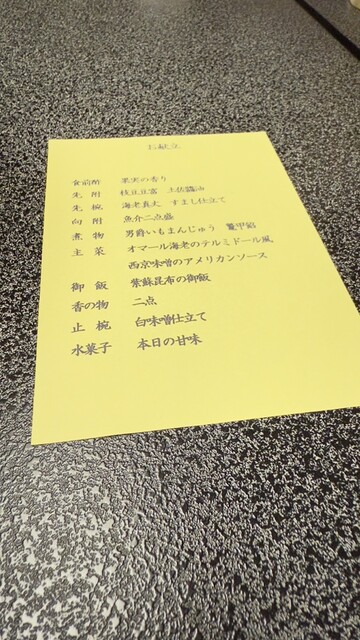 お献立
食前酢 果実の香り
先附 枝豆豆富 土佐醤油
先椀 海老真丈 すまし仕立て
向附 魚介二点盛
煮物 男爵いもまんじゅう 鼈甲餡
主菜 オマール海老のテルミドール風
西京味噌のアメリカンソース
御飯 紫蘇昆布の御飯
香の物 二点
止椀 白味噌仕立て
水菓子 本日の甘味